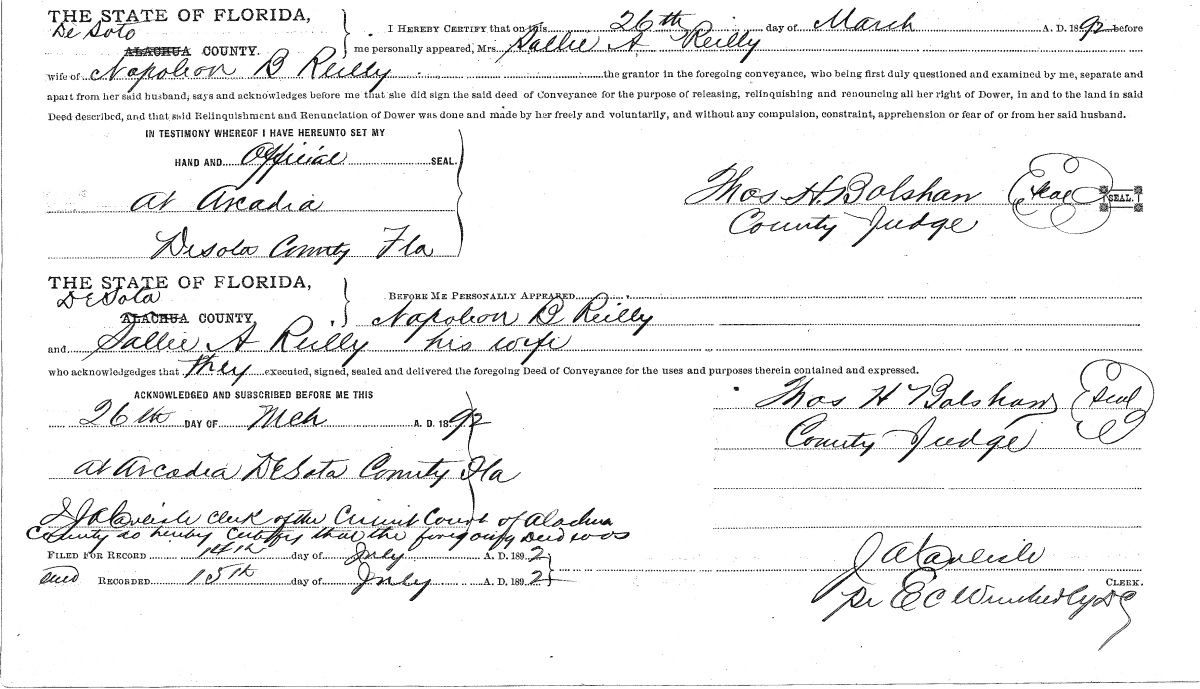 THE STATE OF FLORIDA,
De Soto
ALACHUA COUNTY.
I HEREBY CERTIFY that on this 26th day of March A. D. 1892 before
me personally appeared, Mrs. Sallie A Reilly
wife of Napoleon B Reilly the grantor in the foregoing conveyance, who being first duly questioned and examined by me, separate and
apart from her said husband, says and acknowledges before me that she did sign the said deed of Conveyance for the purpose of releasing, relinquishing and renouncing all her right of Dower, in and to the land in said
Deed described, and that said Relinquishment and Renunciation of Dower was done and made by her freely and voluntarily, and without any compulsion, constraint, apprehension or fear of or from her said husband.
IN TESTIMONY WHEREOF I HAVE HEREUNTO SET MY
HAND AND Official SEAL.
at Arcadia
Desota County Fla
Thos H. Bolshan Seal SEAL.
County Judge
THE STATE OF FLORIDA,
DeSota
ALACHUA COUNTY,
BEFORE ME PERSONALLY APPEARED
Napoleon B Reilly
and Sallie A Reilly his wife
who acknowledgedges that they executed, signed, sealed and delivered the foregoing Deed of Conveyance for the uses and purposes therein contained and expressed.
ACKNOWLEDGED AND SUBSCRIBED BEFORE ME THIS
26th DAY OF Mch A. D. 1892
at Arcadia DeSota County Fla
Thos H Bolshan Seal
County Judge
I J A Carlisle Clerk of the Circuit Court of Alachua
County do hereby Certify that the foregoing Deed was
FILED FOR RECORD day of July A. D. 1892
and RECORDED 15th day of July A. D. 1892
J A Carlisle
CLERK.
Pr E C Wimberly DC